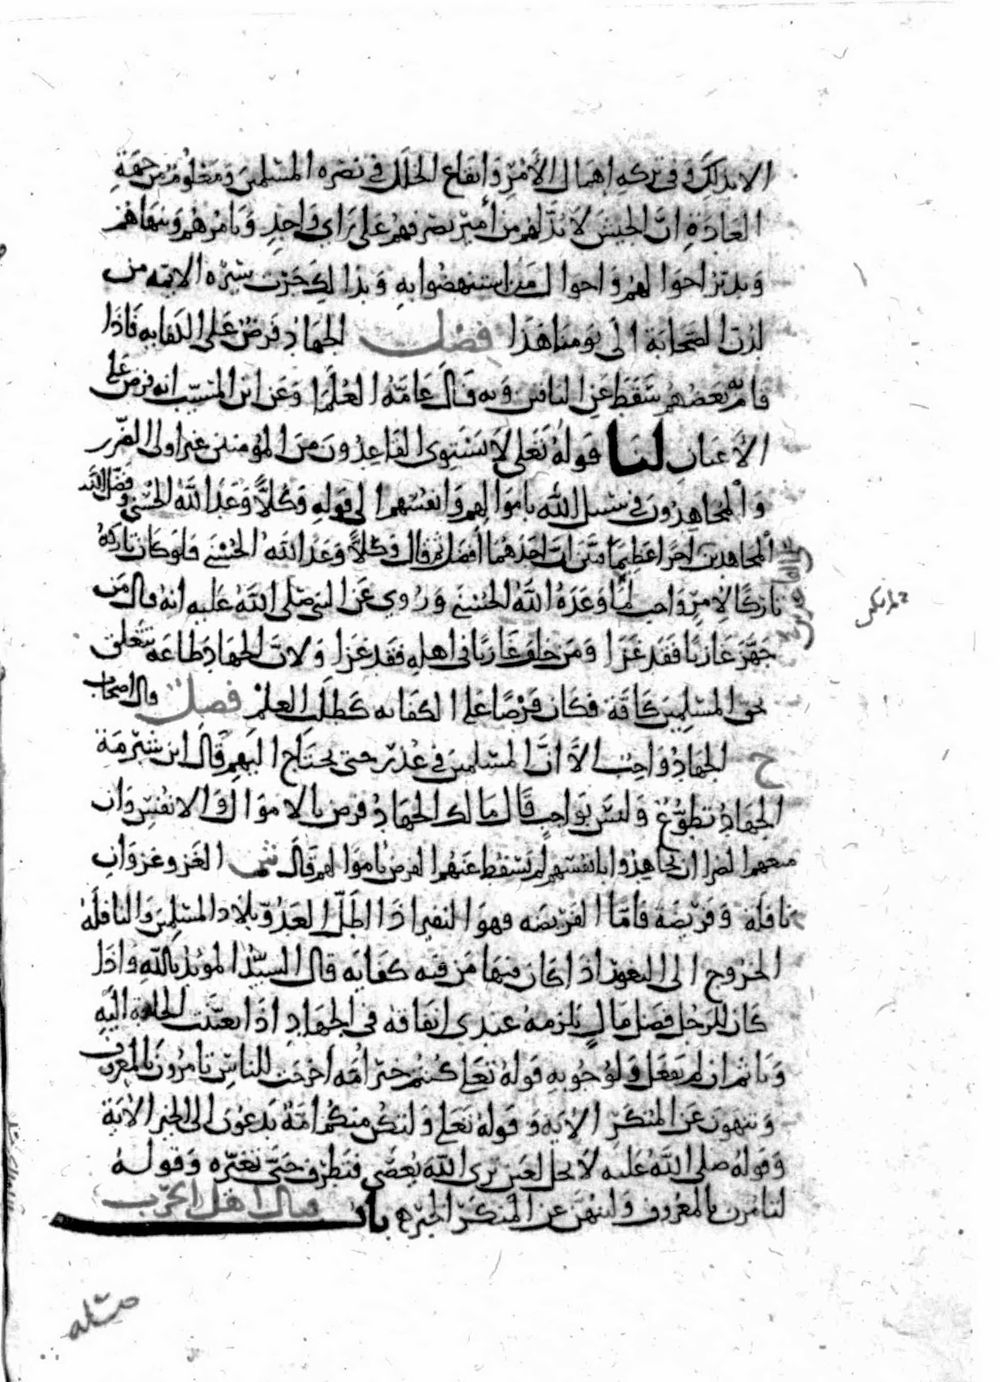 الا بذلك وفي تركه اهمال الأمر وايقاع الخلل في نصره المسلمين ومعلوم من جهة
العادة ان الجيش لا بد لهم من أمير يصرفهم على راي واحد ويامرهم وينهاهم
ويدبر احوالهم واحوال من استنهضوا به وبذلك جرت سيره الايمه من
لدن الصحابة الى يومنا هذا فصل الجهاد فرض على الكفايه فاذا
قام به بعضهم سقط عن الناس وبه قال عامة العلما وعن ابن المسيب انه فرض على
الأعيان لنا قوله تعلى لا يستوى القاعدون من المؤمنين غير اولى الضرر
والمجاهدون في سبيل الله باموالهم وانفسهم الى قوله وكلا وعد الله الحسنى وفضل الله
المجاهدين اجرا عظيما فبين ان احدهما افضل ثم قال وكلا وعد الله الحسنى فلو كان تاركه
تاركا لامر واجب لما وعده الله الحسنى وروي عن النبي صلى الله عليه انه قال من
جهز غازيا فقد غزا ومن خلف غازيا في اهله فقد غزا ولان الجهاد طاعة تتعلق
بحق المسلمين كافة فكان فرضا على الكفايه كطلب العلم فصل قال اصحاب
ح الجهاد واجب الا ان المسلمين في عذر حتى يحتاج اليهم قال ابن شبرمة
الجهاد تطوع وليس بواجب قال مالك الجهاد فرض بالاموال والانفس وان
منعهم الضر ان يجاهدوا بانفسهم لم يسقط عنهم الفرض باموالهم قال الغزو غزوان
نافله وفريضة فاما الفريضه فهو النفير اذا اطل العدو ببلاد المسلمين والنافله
الخروج الى الثغور اذا كان فيها من فيه كفايه قال السيد المويد بالله واذا
كان للرجل فضل مال يلزمه عندى انفاقه في الجهاد اذا تعينت الحاجة اليه
وياثم ان لم يفعل ولوجوبه قوله تعلى كنتم خير امه اخرجت للناس تامرون بالمعروف
وتنهون عن المنكر الايه وقوله تعلى ولتكن منكم امة يدعون الى الخير الاية
وقوله صلى الله عليه لا يحل لعين ترى الله يعصى فتطرف حتى تغيره وقوله
لتامرن بالمعروف ولتنهن عن المنكر الخبر باب قتال اهل الحرب